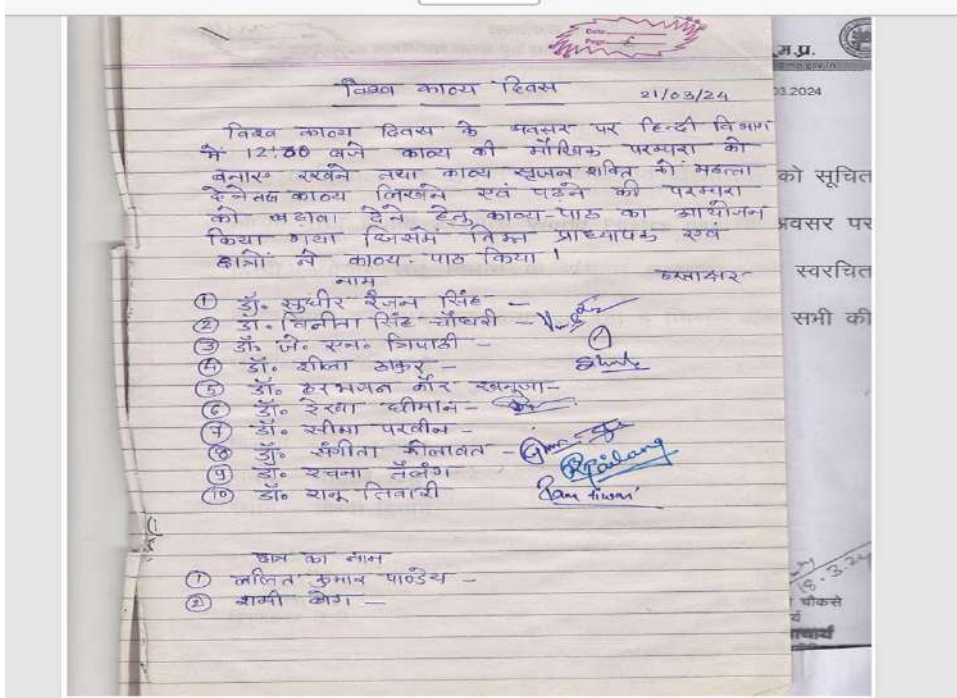 विश्व काव्य दिवस
21/03/24
विश्व काव्य दिवस के अवसर पर हिन्दी विभाग
में 12:00 बजे काव्य की मौखिक परम्परा को
बनाए रखने तथा काव्य सृजन शक्ति को महत्ता
देने तथा काव्य लिखने एवं पढ़ने की परम्परा
को बढ़ावा देने हेतु काव्य-पाठ का आयोजन
किया गया जिसमें निम्न प्राध्यापक एवं
छात्रों ने काव्य-पाठ किया।
नाम हस्ताक्षर
① डॉ० सुधीर रंजन सिंह -
② डॉ० विनीता सिंह चौधरी -
③ डॉ० जे० एन० त्रिपाठी -
④ डॉ० शीला ठाकुर -
⑤ डॉ० हरभजन कौर खनूजा -
⑥ डॉ० रेखा धीमान -
⑦ डॉ० सीमा परवीन -
⑧ डॉ० संगीता कोलावत -
⑨ डॉ० रचना तैलंग
⑩ डॉ० रानू तिवारी
Ranu tiwari
छात्र का नाम
① ललित कुमार पाण्डेय -
② शमी बेग -
म.प्र.
03.2024
को सूचित
अवसर पर
स्वरचित
सभी की
18.3.24
चौकसे